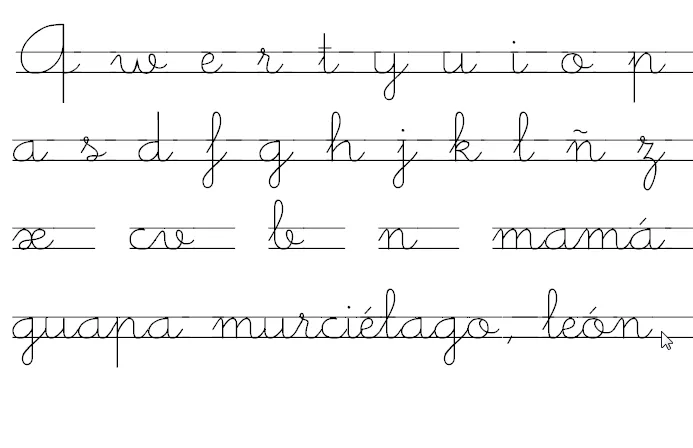 Q w e r t y u i o p
a s d f g h j k l ñ z
x cv b n mamá
guapa murciélago, león